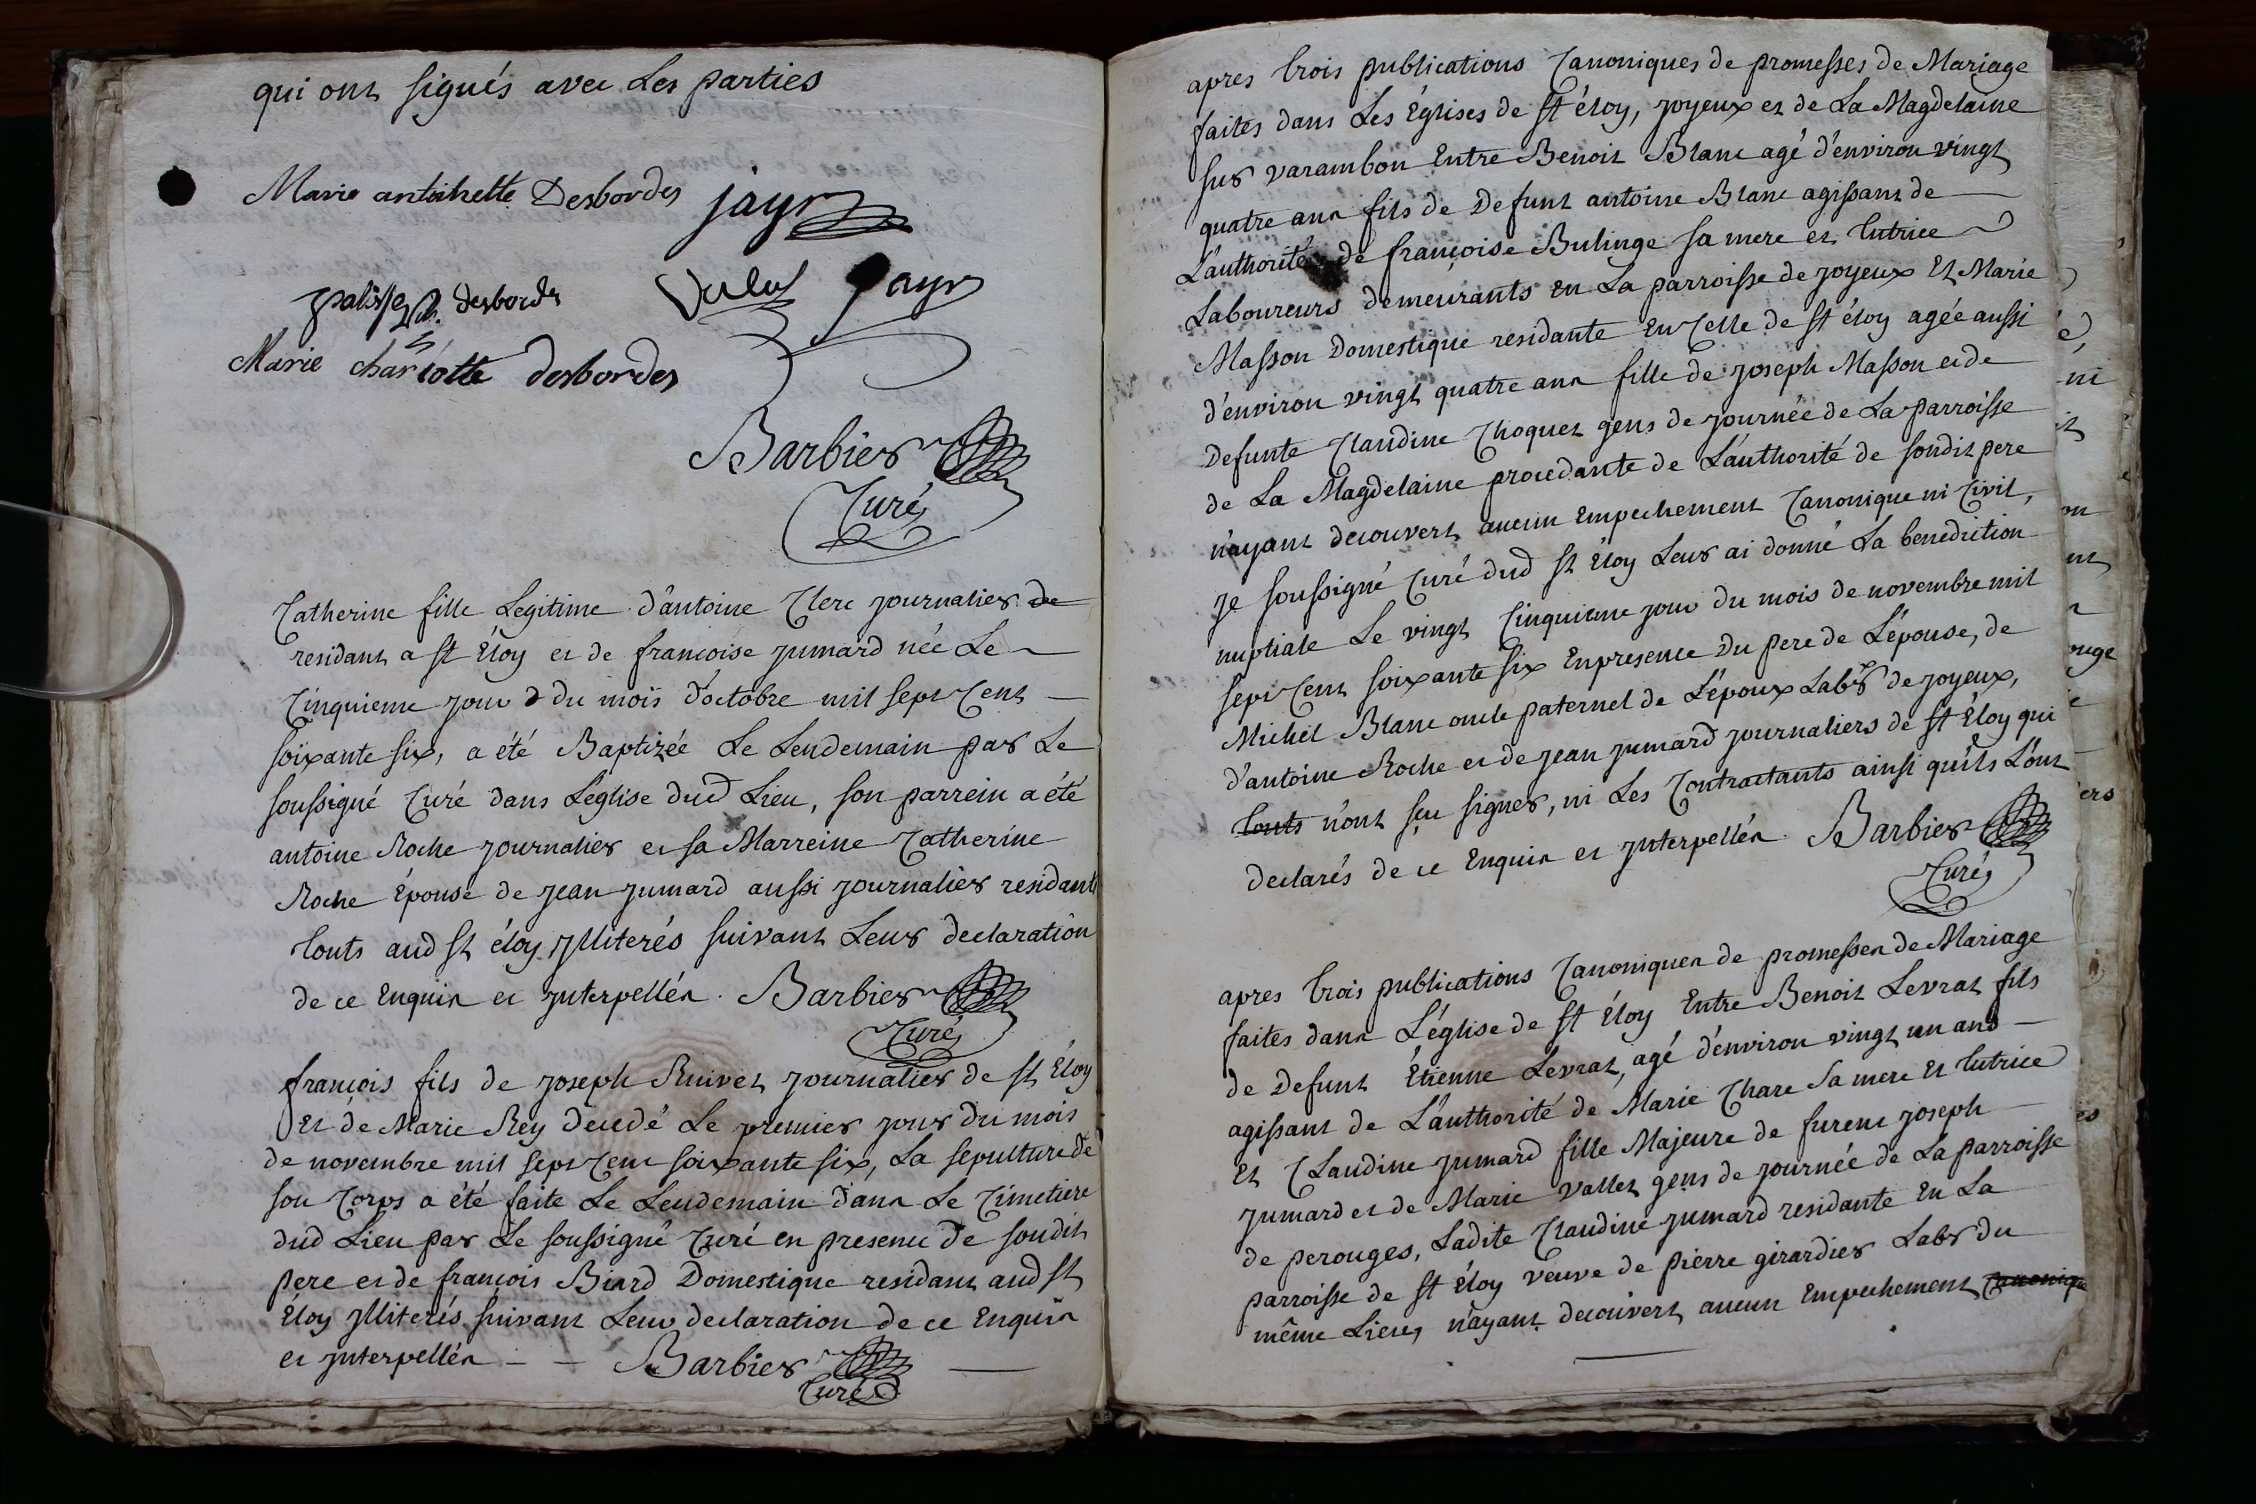 qui ont signés avec Les parties
Marie antoinette Desbordes jayr
palisse desbordes jayr
Marie charlotte desbordes
Barbier
Curé
Catherine fille Legitime d'antoine Clerc journalier de
residant a St Éloy et de francoise jumard née Le
Cinquieme jour d du mois d'octobre mil sept Cent
soixante six, a été Baptizée Le Lendemain par Le
soussigné Curé dans L'église dud Lieu, son parrein a été
antoine Roche journalier et sa Marreine Catherine
Roche Épouse de jean jumard aussi journalier residants
touts aud St éloy jlliterés suivant Leur declaration
de ce Enquis et jnterpellés. Barbier
Curé
françois fils de joseph Ruivet journalier de St Éloy
Et de Marie Rey decedé Le premier jour du mois
de novembre mil sept Cent soixante six, La sepulture de
son Corps a été faite Le Lendemain dans Le Cimetiere
dud Lieu par Le soussigné Curé en presence de soudit
pere et de françois Biard Domestique residant aud St
Éloy jlliterés suivant Leur declaration de ce Enquis
et jnterpellés Barbier
Curé
apres trois publications Canoniques de promesses de Mariage
faites dans Les Églises de St éloy, joyeux et de La Magdelaine
sur varambon Entre Benoit Blanc agé d'environ vingt
quatre ans fils de Defunt antoine Blanc agissant de
L'authorité de françoise Bulinge sa mere et tutrice
Laboureurs demeurants en La parroisse de joyeux Et Marie
Masson Domestique residante En Celle de St éloy agée aussi
d'environ vingt quatre ans fille de joseph Masson et de
Defunte Claudine Choquet gens de journée de La parroisse
de La Magdelaine procedante de L'authorité de sondit pere
n'ayant decouvert aucun Empechement Canonique ni Civil,
je soussigné Curé dud St Éloy Leur ai donné La benediction
nuptiale Le vingt Cinquieme jour du mois de novembre mil
sept Cent soixante six Enpresence Du pere de L'épouse, de
Michel Blanc oncle paternel de L'époux Labr de joyeux,
d'antoine Roche et de jean jumard journaliers de St Éloy qui
touts n'ont sçu signer, ni Les Contractants ainsi qu'ils L'ont
declarés de ce Enquis et jnterpellés Barbier
Curé
apres trois publications Canoniques de promesses de Mariage
faites dans L'église de St Éloy Entre Benoit Levrat fils
de Defunt Étienne Levrat, agé d'environ vingt un ans
agissant de L'authorité de Marie Chare sa mere Et tutrice
Et Claudine jumard fille Majeure de furent joseph
jumard et de Marie vallet gens de journée de La parroisse
de perouges, Ladite Claudine jumard residante En La
parroisse de St Éloy veuve de pierre girardier Labr du
même Lieu, n'ayant decouvert aucun Empechement Canonique